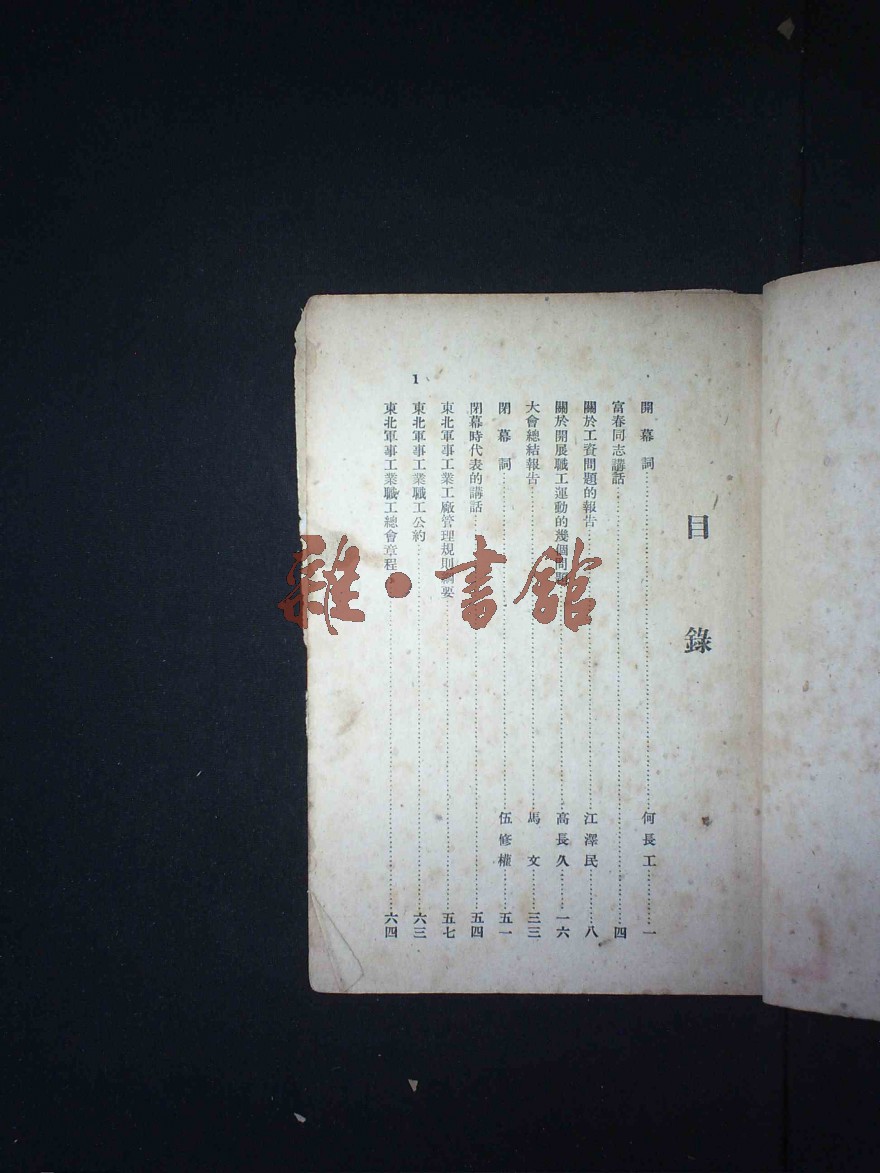 目錄
開幕詞……何長工……一
富春同志講話……四
關於工資問題的報告……江澤民……八
關於開展職工運動的幾個問題……高長久……一六
大會總結報告……馬文……三三
閉幕詞……伍修權……五一
閉幕時代表的講話……五四
東北軍事工業工廠管理規則綱要……五七
東北軍事工業職工公約……六三
東北軍事工業職工總會章程……六四
1
雜·書館